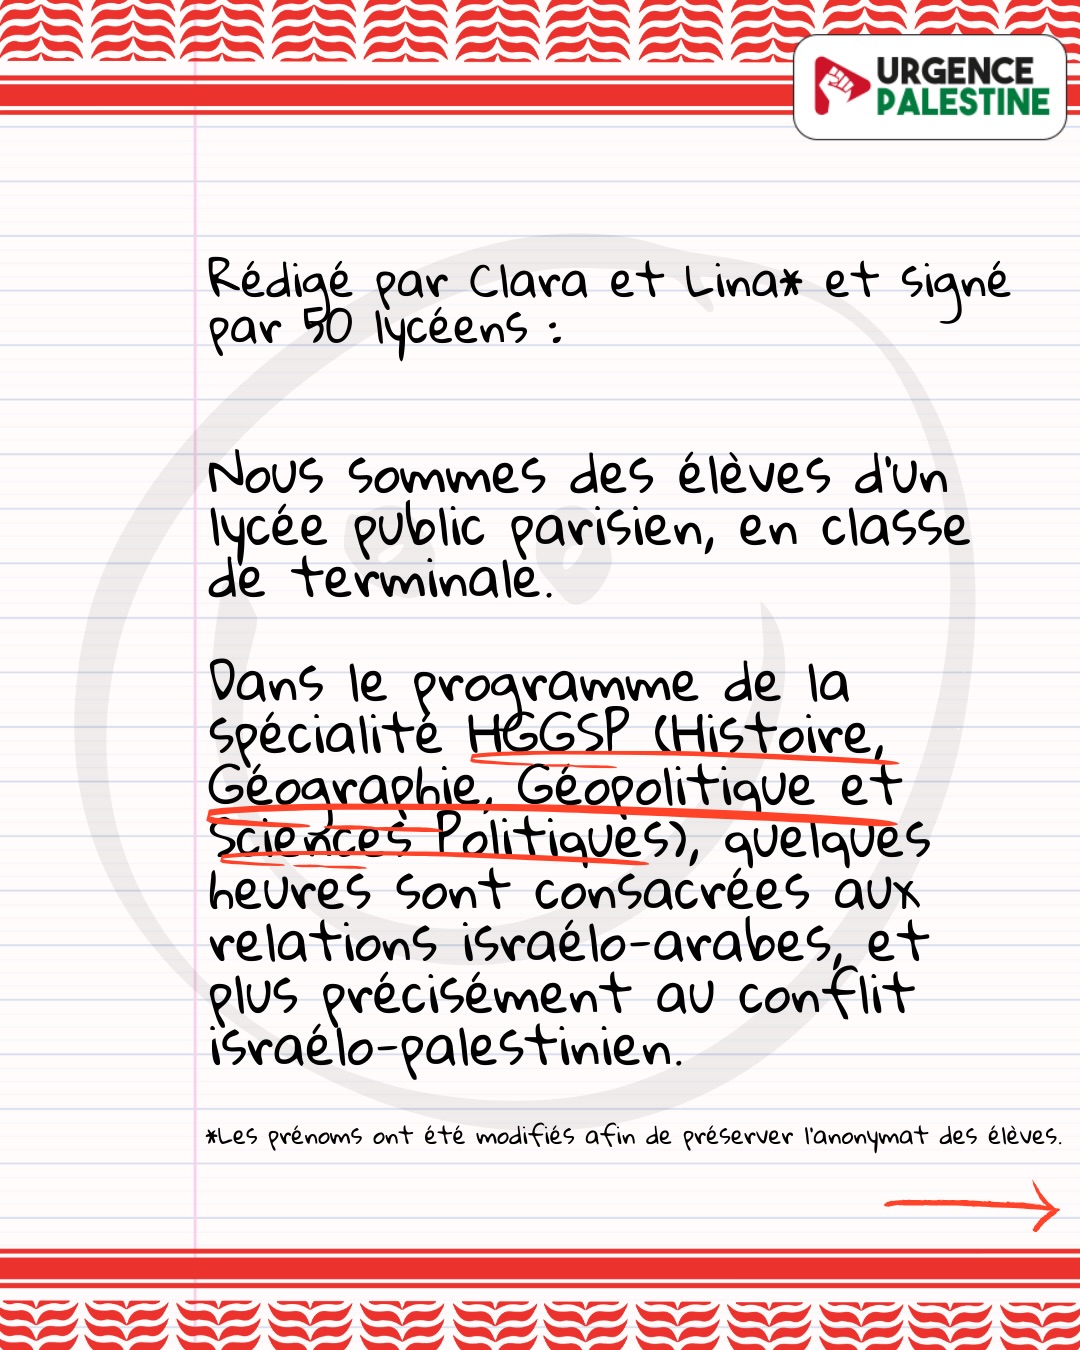 URGENCE
PALESTINE
Rédigé par Clara et Lina* et signé
par 50 lycéens :
Nous sommes des élèves d'un
lycée public parisien, en classe
de terminale.
Dans le programme de la
spécialité HGGSP (Histoire,
Géographie, Géopolitique et
Sciences Politiques), quelques
heures sont consacrées aux
relations israélo-arabes, et
plus précisément au conflit
israélo-palestinien.
*Les prénoms ont été modifiés afin de préserver l'anonymat des élèves.